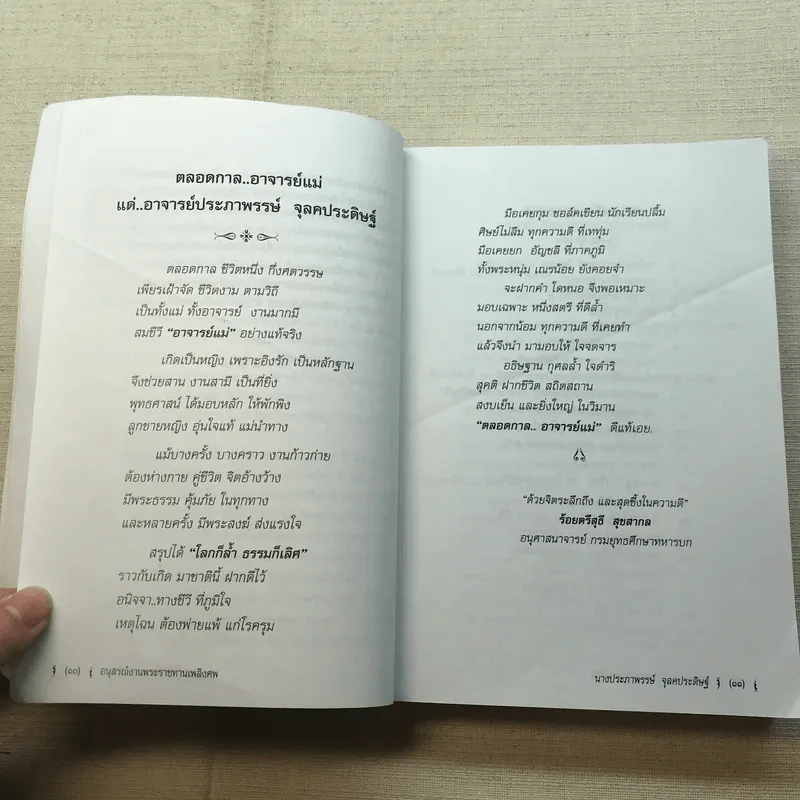 ตลอดกาล..อาจารย์แม่
แด่..อาจารย์ประภาพรรษ์ จุลคประดิษฐ์
ตลอดกาล ชีวิตหนึ่ง กึ่งศตวรรษ
เพียรเฝ้าจัด ชีวิตงาม ตามวิถี
เป็นทั้งแม่ ทั้งอาจารย์ งานมากมี
สมชีวี “อาจารย์แม่” อย่างแท้จริง
เกิดเป็นหญิง เพราะอิงรัก เป็นหลักฐาน
จึงช่วยสาน งานสามี เป็นที่ยิ่ง
พุทธศาสน์ ได้มอบหลัก ให้พักพิง
ลูกชายหญิง อุ่นใจแท้ แม่นำทาง
แม้บางครั้ง บางคราว งานก้าวก่าย
ต้องห่างกาย คู่ชีวิต จิตอ้างว้าง
มีพระธรรม คุ้มภัย ในทุกทาง
และหลายครั้ง มีพระสงฆ์ ส่งแรงใจ
สรุปได้ “โลกก็ล้ำ ธรรมก็เลิศ”
ราวกับเกิด มาชาตินี้ ฝากดีไว้
อนิจจา..ทางชีวี ที่ภูมิใจ
เหตุไฉน ต้องพ่ายแพ้ แก่โรครุม
(๑๐) อนุสรณ์งานพระราชทานเพลิงศพ
มือเคยกุม ชอล์คเขียน นักเรียนปลื้ม
ศิษย์ไม่ลืม ทุกความดี ที่เททุ่ม
มือเคยยก อัญชลี ที่ภาคภูมิ
ทั้งพระหนุ่ม เณรน้อย ยังคอยจำ
จะฝากคำ ใดหนอ จึงพอเหมาะ
มอบเฉพาะ หนึ่งสตรี ที่ดีล้ำ
นอกจากน้อม ทุกความดี ที่เคยทำ
แล้วจึงนำ มามอบให้ ใจจดจาร
อธิษฐาน กุศลล้ำ ใจดำริ
สุคติ ฝากชีวิต สถิตสถาน
สงบเย็น และยิ่งใหญ่ ในวิมาน
“ตลอดกาล.. อาจารย์แม่” ดีแท้เอย.
“ด้วยจิตระลึกถึง และสุดซึ้งในความดี”
ร้อยตรีสุธี สุขสากล
อนุศาสนาจารย์ กรมยุทธศึกษาทหารบก
นางประภาพรรษ์ จุลคประดิษฐ์ (๑๑)